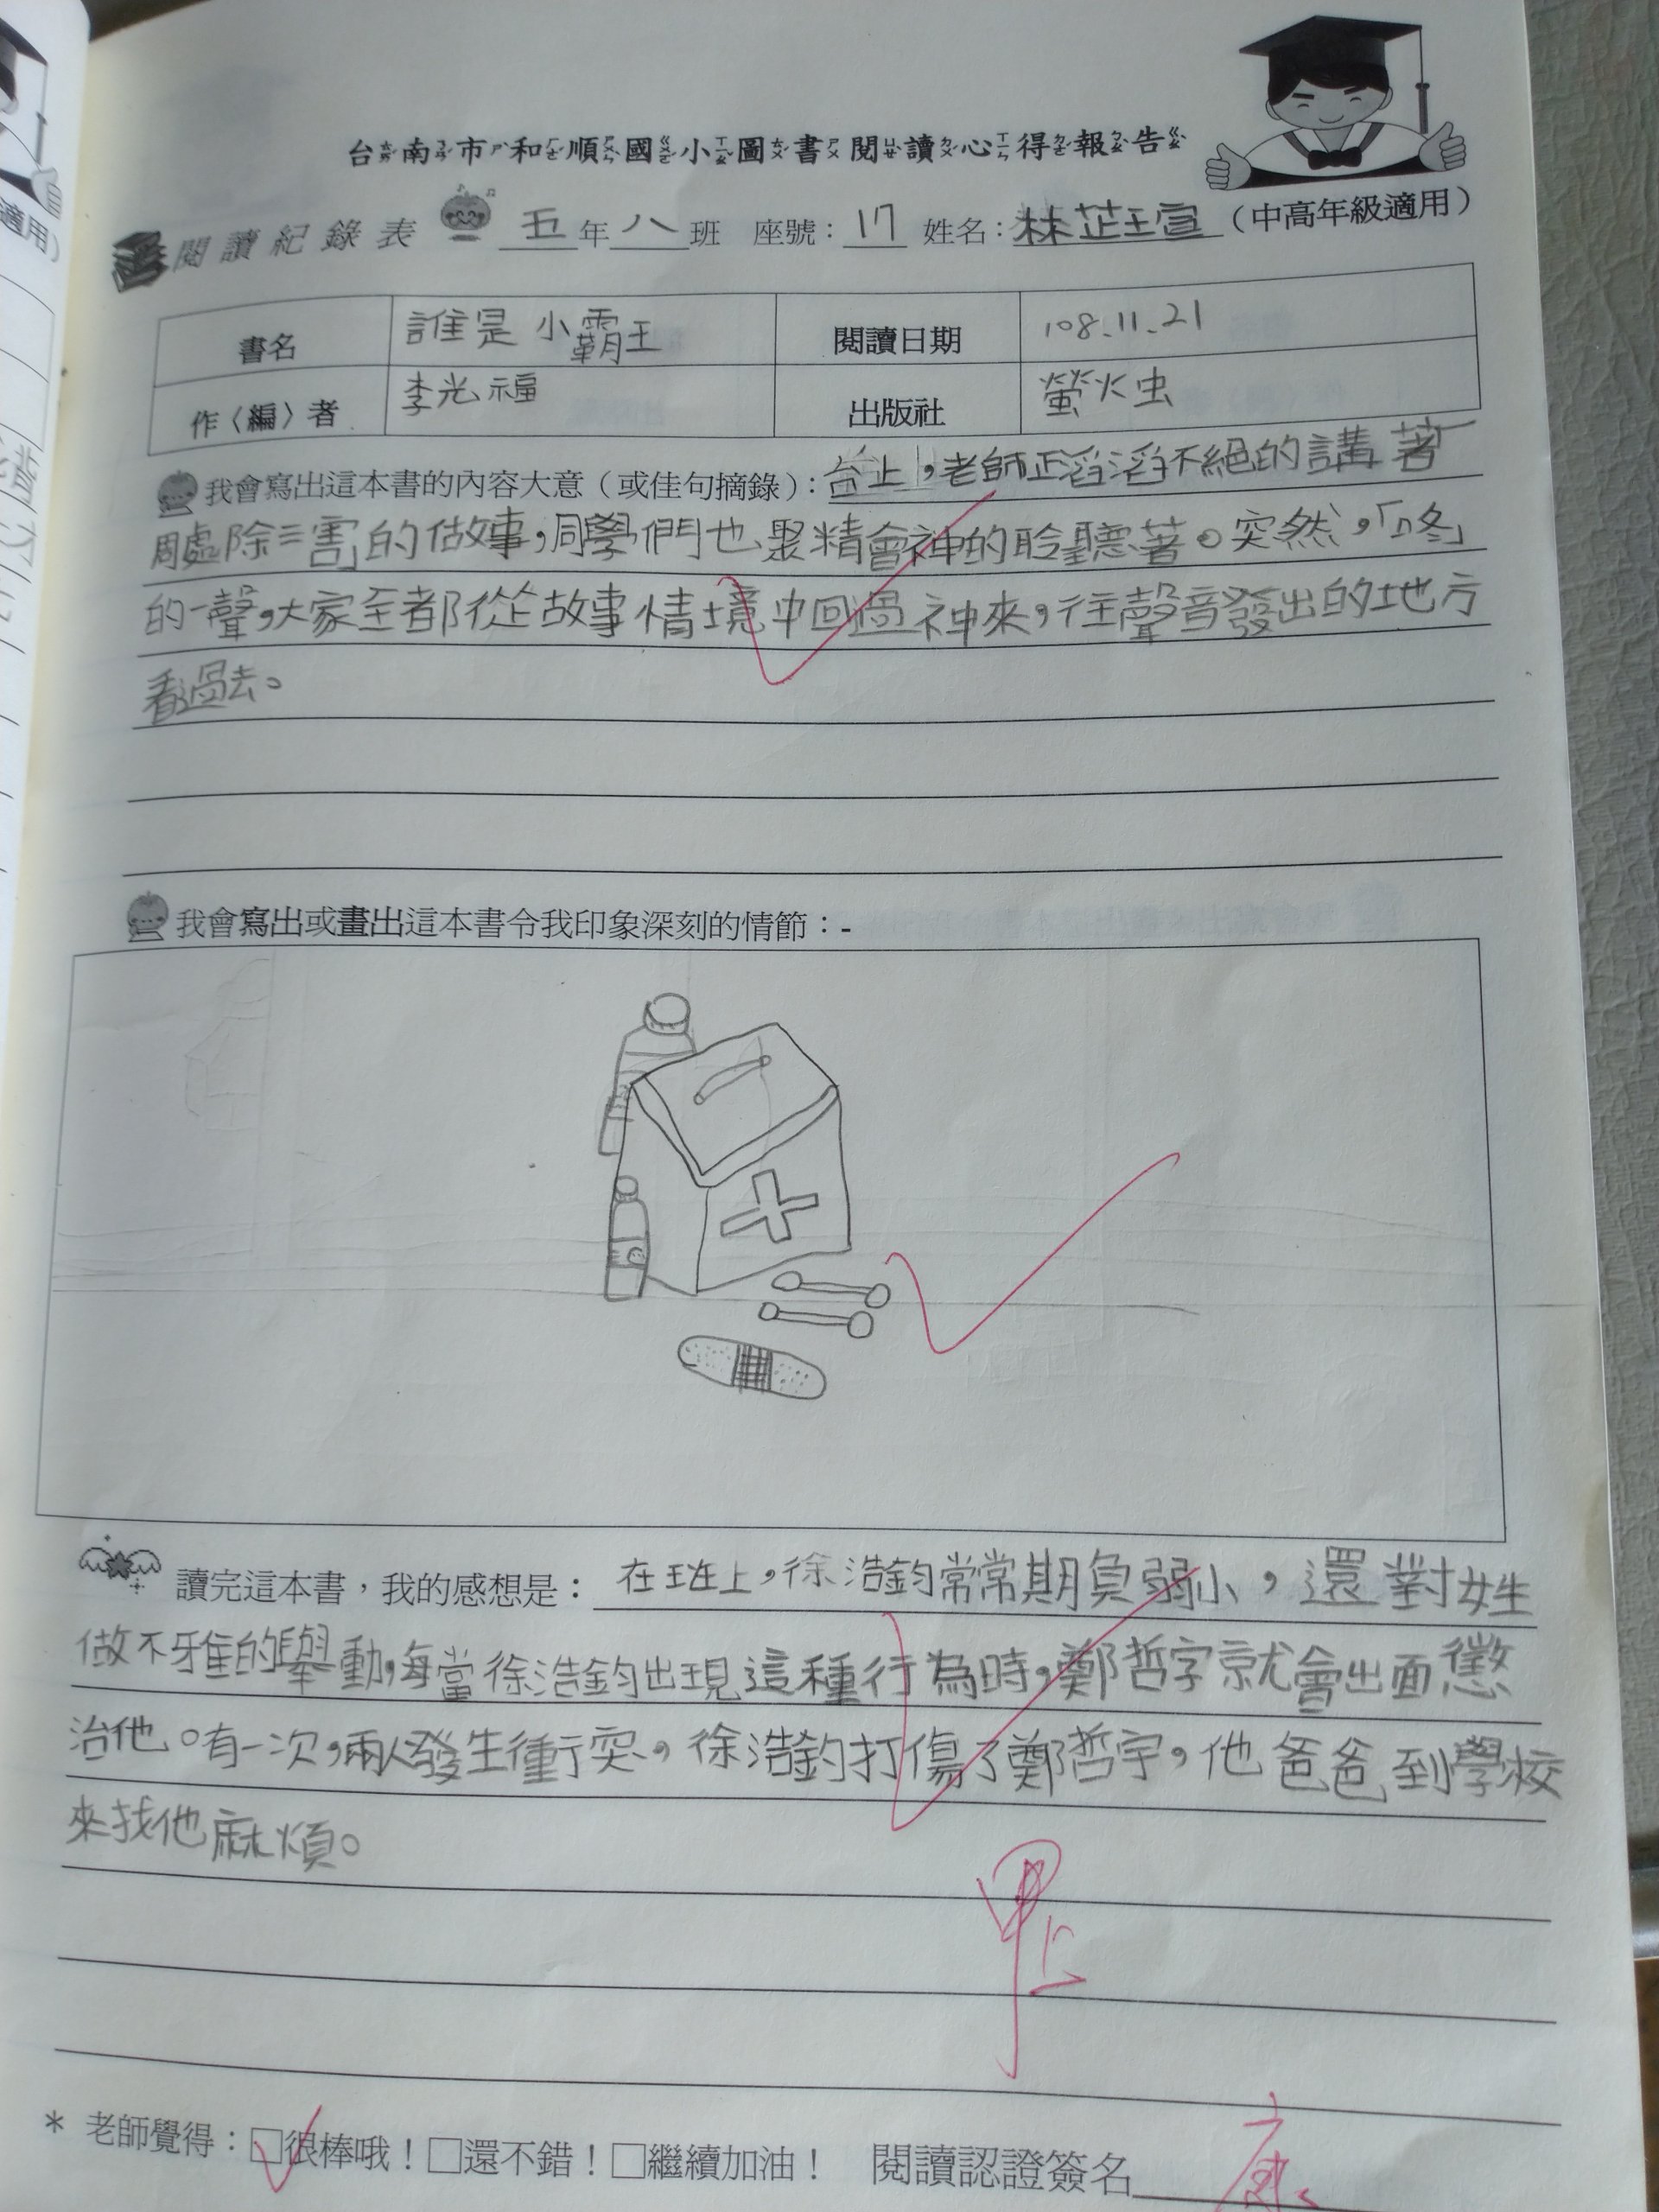 台南市和順國小圖書閱讀心得報告
閱讀紀錄表 五年八班 座號：17 姓名：林芷瑄（中高年級適用）
書名 誰是小霸王 閱讀日期 108.11.21
作〈編〉者 李光福 出版社 螢火虫
我會寫出這本書的內容大意（或佳句摘錄）：台上，老師正滔滔不絕的講著
周處除三害的做事，同學們也聚精會神的聆聽著。突然，「咚」
的一聲，大家全都從故事情境中回過神來，往聲音發出的地方
看過去。
我會寫出或畫出這本書令我印象深刻的情節：-
讀完這本書，我的感想是：在班上，徐浩鈞常常期負弱小，還對女生
做不雅的舉動，每當徐浩鈞出現這種行為時，鄭哲宇就會出面懲
治他。有一次，兩人發生衝突，徐浩鈞打傷了鄭哲宇，他爸爸到學校
來找他麻煩。
甲上
* 老師覺得：□很棒哦！□還不錯！□繼續加油！ 閱讀認證簽名
適用）